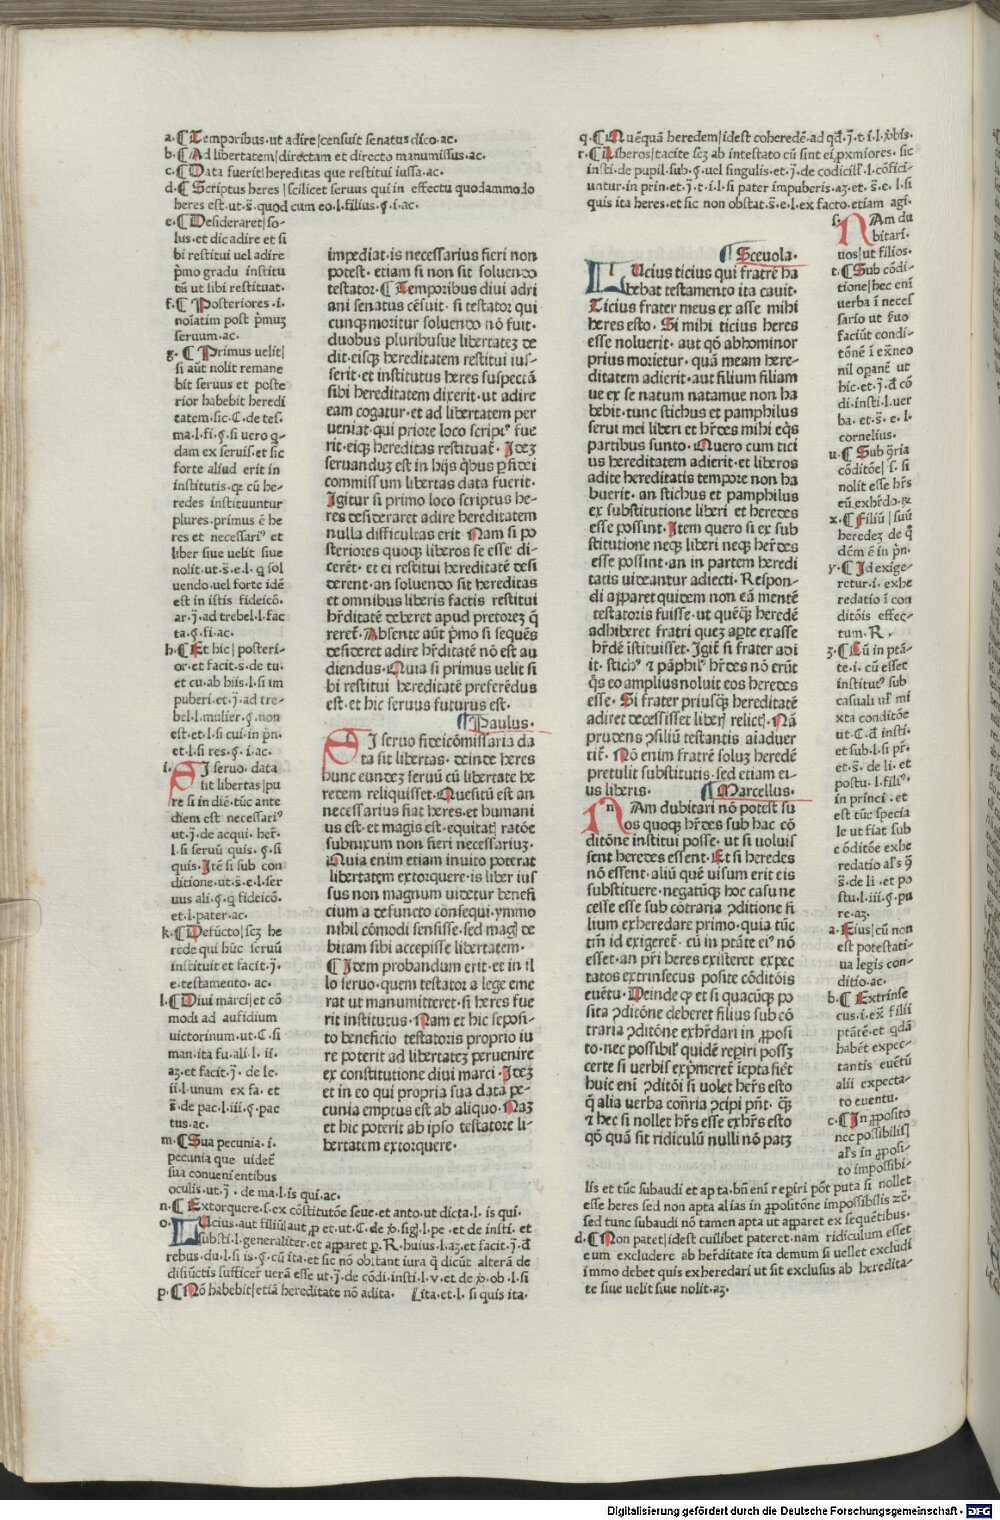 a.¶Temporibus.ut adire|censuit senatus dico.ac.
b.¶Ad libertatem|directam et directo manumissus.ac.
c.¶Data fuerit|hereditas que restitui iussa.ac.
d.¶Scriptus heres|scilicet seruus qui in effectu quodammodo
heres est.ut.s̄.quod cum eo.l.filius.§.i.ac.
e.¶Desideraret|so-
lus.et dic adire et si
bi restitui uel adire
p̄mo gradu institu
tū ut libi restituat.
f.¶Posteriores.i.
noīatim post p̄muʒ
seruum.ac.
g.¶Primus uelit|
si aūt nolit remane
bit seruus et poste
rior habebit heredi
tatem.sic.C.de tes.
ma.l.fi.§.si uero q-
dam ex seruis.et sic
forte aliud erit in
institutis.qꝛ cū he-
redes instituuntur
plures.primus ē he
res et necessariꝰ et
liber siue uelit siue
nolit.ut.s̄.e.l.q sol
uendo.uel forte idē
est in istis fideicō.
ar.j̄.ad trebel.l.fac
ta.§.fi.ac.
h.¶Et hic|posteri-
or.et facit.s̄.de tu.
et cu.ab hiis.l.si im
puberi.et.j̄.ad tre-
bel.l.mulier.§.non
est.et.l.si cui.in pn̄.
et.l.si res.§.i.ac.
i. SI seruo.data
sit libertas|pu
re si in diē.tūc ante
diem est necessariꝰ
ut.j̄.de acqui.her̄.
l.si seruū quis.§.si
quis.Itē si sub con
ditione.ut.s̄.e.l.ser
uus ali.§.q fideicō.
et.l.pater.ac.
k.¶Defūcto|scʒ he
rede qui hūc seruū
instituit et facit.j̄.
e.testamento.ac.
l.¶Diui marci|et cō
modi ad aufidium
victorinum.ut.C.si
man.ita fu.ali.l.ii.
aʒ.et facit.j̄.de le.
ii.l.unum ex fa.et
s̄.de pac.l.iii.§.pac
tus.ac.
m.¶Sua pecunia.i.
pecunia que uidet̄
sua conuenientibus
oculis.ut.j̄.de ma.l.is qui.ac.
n.¶Extorquere.s.ex cōstitutōe seue.et anto.ut dicta.l.is qui.
o. LUcius.aut filiū|aut
substi.l.generaliter.et apparet
rebus.du.l.si is.§.cū ita.et sic nō obstant iura q̄ dicūt alterā de
disiūctis sufficer̄ uerā esse ut.j̄.de cōdi.insti.l.v.et de
p.¶Nō habebit|etiā hereditate nō adita. Lita.et.l.si quis ita.
impediat.is necessarius fieri non
potest.etiam si non sit soluendo
testator.¶Temporibus diui adri
ani senatus cēsuit.si testator qui
cunqʒ moritur soluendo nō fuit.
duobus pluribusue libertateʒ de
dit.eisqʒ hereditatem restitui ius-
serit.et institutus heres suspectā
sibi hereditatem dixerit.ut adire
eam cogatur.et ad libertatem per
ueniat.qui priore loco scriptꝰ fue
rit.eiqʒ hereditas restituat̄.Ideʒ
seruanduʒ est in hijs q̄bus p fidei
commissum libertas data fuerit.
Igitur si primo loco scriptus he-
res desideraret adire hereditatem
nulla difficultas erit.Nam si po
steriores quoqʒ liberos se esse di-
cerēt.et ei restitui hereditatē desi
derent.an soluendo sit hereditas
et omnibus liberis factis restitui
hr̄ditatē deberet apud pretoreʒ q̄
reret̄.Absente aūt p̄mo si sequēs
desideret adire hr̄ditatē nō est au
diendus.Quia si primus uelit si
bi restitui hereditatē preferēdus
est.et hic seruus futurus est.
¶Paulus.
SI seruo fideicōmissaria da
ta sit libertas.deinde heres
hunc eundeʒ seruū cū libertate he
redem reliquisset.Quesitū est an
necessarius fiat heres.et humani
us est.et magis est.equitatis ratōe
subnixum non fieri necessariuʒ.
Quia enim etiam inuito poterat
libertatem extorquere.is liber ius
sus non magnum uidetur benefi
cium a defuncto consequi.ymmo
nihil cōmodi sensisse.sed magis de
bitam sibi accepisse libertatem.
¶Idem probandum erit.et in il
lo seruo.quem testator a lege eme
rat ut manumitteret.si heres fue
rit institutus.Nam et hic seposi-
to beneficio testatoris proprio iu
re poterit ad libertateʒ peruenire
ex constitutione diui marci.Ideʒ
et in eo qui propria sua data pe-
cunia emptus est ab aliquo.Naʒ
et hic poterit ab ipso testatore li-
bertatem extorquere.
q.¶Quēquā heredem|idest coheredē.
r.¶Liberos|tacite scʒ ab intestato cū sint ei proximiores.sic
insti.de pupil.sub.§.uel singulis.et.j̄.de codicill̄.l.cōfici-
untur.in prin.et.j̄.t.i.l.si pater impuberis.aʒ.et.s̄.e.l.si
quis ita heres.et sic non obstat.s̄.e.l.ex facto.etiam agi.
¶Sceuola.
LUcius ticius qui fratrē ha
bebat testamento ita cauit.
Ticius frater meus ex asse mihi
heres esto.Si mihi ticius heres
esse noluerit.aut qō abhominor
prius morietur.quā meam here-
ditatem adierit.aut filium filiam
ue ex se natum natamue non ha
bebit.tunc stichus et pamphilus
serui mei liberi et hr̄des mihi eq̄s
partibus sunto.Quero cum tici
us hereditatem adierit.et liberos
adite hereditatis tempore non ha
buerit.an stichus et pamphilus
ex substitutione liberi et heredes
esse possint.Item quero si ex sub
stitutione neqʒ liberi neqʒ her̄des
esse possint.an in partem heredi
tatis uideantur adiecti.Respon-
di apparet quidem non eā mentē
testatoris fuisse.ut quēqʒ heredē
adhiberet fratri queʒ apte ex asse
hr̄dē istituisset.Igit̄ si frater adi
it.stichꝰ ⁊ pāphilꝰ hr̄des nō erūt
q̄s eo amplius noluit eos heredes
esse.Si frater priusqʒ hereditatē
adiret decessisset liberis relictis.Nā
prudens ꝯsiliū testantis aiaduer
tit̄.Nō enim fratrē soluʒ heredē
pretulit substitutis.sed etiam ei-
us liberis. ¶Marcellus.
NAm dubitari nō potest su
os quoqʒ hr̄des sub hac cō
ditōne institui posse.ut si uoluis
sent heredes essent.Et si heredes
nō essent.aliū quē uisum erit eis
substituere.negatūqʒ hoc casu ne
cesse esse sub cōtraria ꝯditione fi
lium exheredare primo.quia tūc
tm̄ id exigeret̄.cū in ptāte eiꝰ nō
esset.an pr̄i heres existeret expec
tatos extrinsecus posite cōditōis
euētu.Deinde qꝛ et si quacūqʒ po
sita ꝯditōne deberet filius sub cō
traria ꝯditōne exhr̄dari in proposi
to.nec possibil̄ quidē repiri possʒ
certe si uerbis exp̄meret̄ iepta fiet
huic enī ꝯditōi si uolet her̄s esto
q̄ alia uerba con̄ria ꝯcipi pn̄t.
⁊ hec si nollet hr̄s esse exhr̄s esto
qō quā sit ridiculū nulli nō patʒ
s. NAm du
bitari.
uos|ut filios.
t.¶Sub cōdi-
tione|hec enī
uerba ī neces
sario ut suo
faciūt condi-
tōnē ī exn̄eo
nil opant̄ ut
hic.et.j̄.d̄ cō
di.insti.l.uer
ba.et.s̄.e.l.
cornelius.
u.¶Sub q̄ria
cōditōe|s.si
nolit esse hr̄s
eū exhr̄do.
x.¶Filiū|suū
heredeʒ de q̄
dc̄m ē in pn̄.
y.¶Id exige-
retur.i.exhe
redatio ī con
ditōis effec-
tum.R.
z.¶Cū in ptā-
te.i.cū esset
institutꝰ sub
casuali ul̄ mi
xta conditōe
ut.C.d̄ insti.
et sub.l.si pr̄.
et.s̄.de li.et
postu.l.filiꝰ.
in princi.et
est tūc specia
le ut fiat sub
cōditōe exhe
redatio al̄s
s̄.de li.et po
stu.l.iii.§.pu
re.aʒ.
a.¶Eius|cū non
est potestati-
ua legis con-
ditio.ac.
b.¶Extrinse
cus.i.ex̄ filii
ptātē.et q̄dā
habēt expec-
tantis euētū
alii expecta-
to euentu.
c.¶In proposito
nec possibilis|
al̄s in proposi-
to impossibi-
lis et tūc subaudi et apta.bn̄ enī repiri pōt puta si nollet
esse heres sed non apta alias in propositōne impossibilis
sed tunc subaudi nō tamen apta ut apparet ex sequētibus.
d.¶Non patet|idest cuilibet pateret.nam ridiculum esset
eum excludere ab her̄ditate ita demum si uellet excludi
immo debet quis exheredari ut sit exclusus ab heredita-
te siue uelit siue nolit.aʒ.
Digitalisierung gefördert durch die Deutsche Forschungsgemeinschaft - DFG